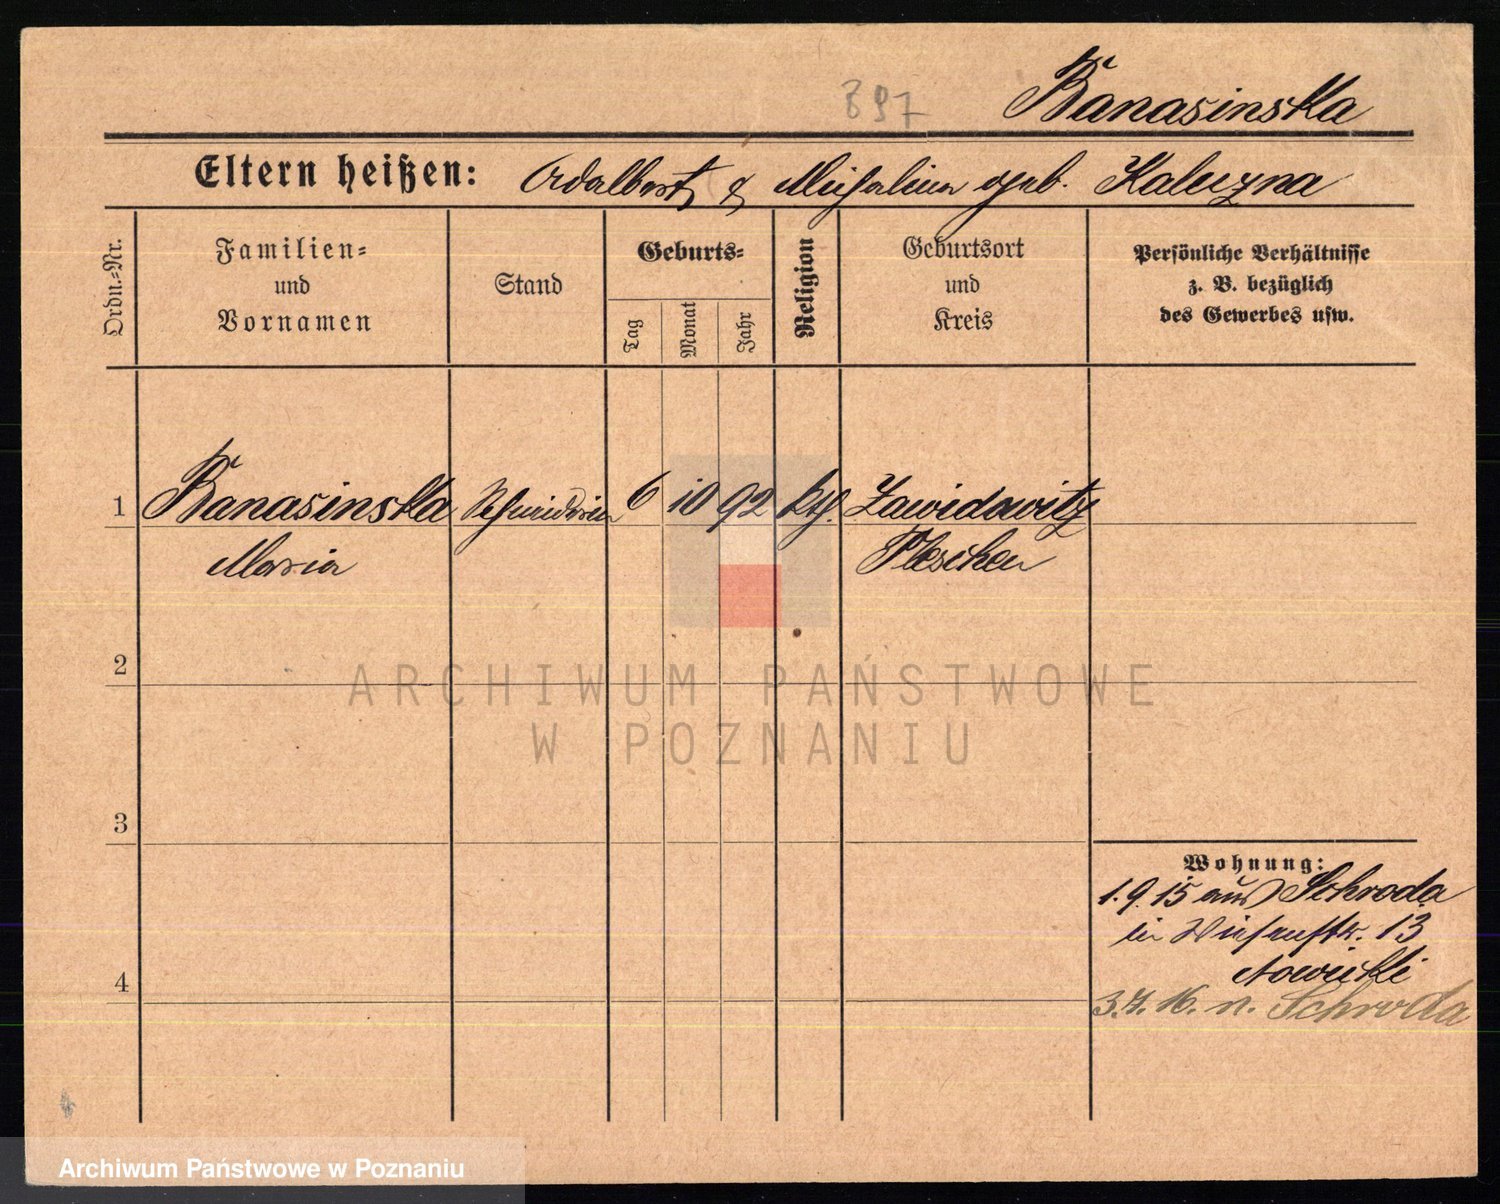 897
Banasinska
Eltern heißen: Adalbert & Michalina geb. Kaluzna
Ordn.-Nr.
Familien- und Vornamen
Stand
Geburts-
Tag
Monat
Jahr
Religion
Geburtsort und Kreis
Persönliche Verhältnisse z. B. bezüglich des Gewerbes usw.
1 Banasinska Schneiderin 6 10 92 kth. Zawidowitz
Maria Pleschen
2
ARCHIWUM PAŃSTWOWE
W POZNANIU
3
Wohnung:
1.9.15 aus Schroda
in Wiesenstr. 13
Nowicki
4
3.7.16. n. Schroda
Archiwum Państwowe w Poznaniu